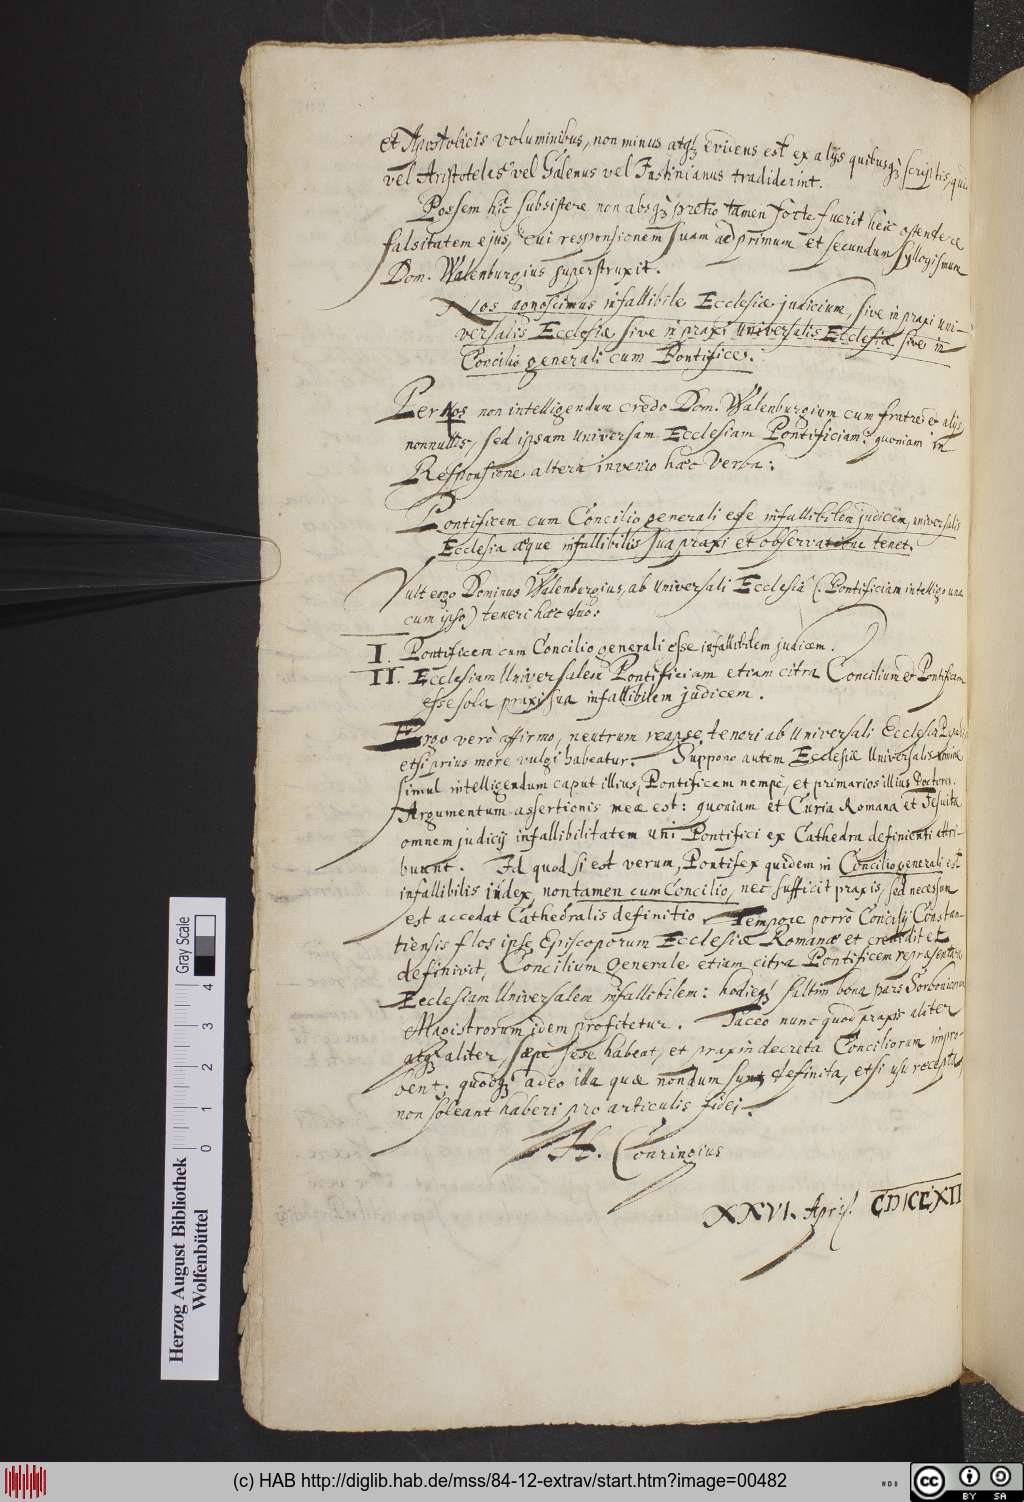 et Apostolicis voluminibus, non minus atqȝ evidens est ex alijs quibusqȝ scriptis, quid
vel Aristoteles vel Galenus vel Justinianus tradiderint.
Possem hîc subsistere non absqȝ pretio tamen forte fuerit heic ostendere
falsitatem ejus, cui responsionem suam ad primum et secundum syllogismum
Dom. Walenburgius superstruxit.
Nos agnoscimus infallibile Ecclesiæ judicium, sive in praxi uni-
versalis Ecclesiæ sive in praxi universalis Ecclesiæ sive in
Concilio generali cum Pontifice.
Per Nos non intelligendum credo Dom. Walenburgium cum fratre et alijs
nonnullis, sed ipsam universam Ecclesiam Pontificiam: quoniam in
Responsione altera invenio hæc verba:
Pontificem cum Concilio generali esse infallibilem judicem, universalis
Ecclesia æque infallibilis sua praxi et observatione tenet.
Vult ergo Dominus Walenburgius, ab universali Ecclesia (Pontificiam intelligo una
cum ipso) teneri hæc duo:
I. Pontificem cum Concilio generali esse infallibilem judicem.
II. Ecclesiam Universalem Pontificiam etiam citra Concilium et Pontificem
esse sola praxi sua infallibilem judicem.
Ergo verò affirmo, neutrum reapse teneri ab Universali Ecclesia
etsi prius more vulgi habeatur. Suppono autem Ecclesiæ Universalis nomine
simul intelligendum caput illius, Pontificem nempe, et primarios illius Doctores.
Argumentum assertionis meæ est: quoniam et Curia Romana et Jesuitæ
omnem judicij infallibilitatem uni Pontifici ex Cathedra definienti attri-
buunt. Id quod si est verum, Pontifex quidem in Concilio generali est
infallibilis judex, non tamen cum Concilio, nec sufficit praxis, sed necesse
est accedat Cathedralis definitio. Tempore porrò Concilij Constan-
tiensis flos ipse Episcoporum Ecclesiæ Romanæ et credidit et
definivit, Concilium generale etiam citra Pontificem repræsentare
Ecclesiam Universalem infallibilem: hodieqȝ saltim bona pars Sorbonicorum
Magistrorum idem profitetur. Taceo nunc quod praxis aliter
atqȝ aliter, sæpe sese habeat, et praxin decreta Conciliorum impro-
bent: quodqȝ adeo illa quæ nondum sunt definita, etsi usu recepta,
non soleant haberi pro articulis fidei.
H. Conringius
XXVI. April.
Herzog August Bibliothek
Wolfenbüttel
Gray Scale
0 1 2 3 4
(c) HAB http://diglib.hab.de/mss/84-12-extrav/start.htm?image=00482
WDB
cc BY SA